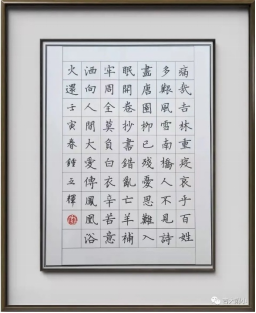 痛哉吉林重疫哀乎百姓
多艱風雪南橋人不見詩
盡唐園柳已殘憂思難入
眠開卷抄書錯亂亡羊補
牢周全莫負白衣辛苦意
洒向人間大愛傳鳳凰浴
火還壬寅春鍾立